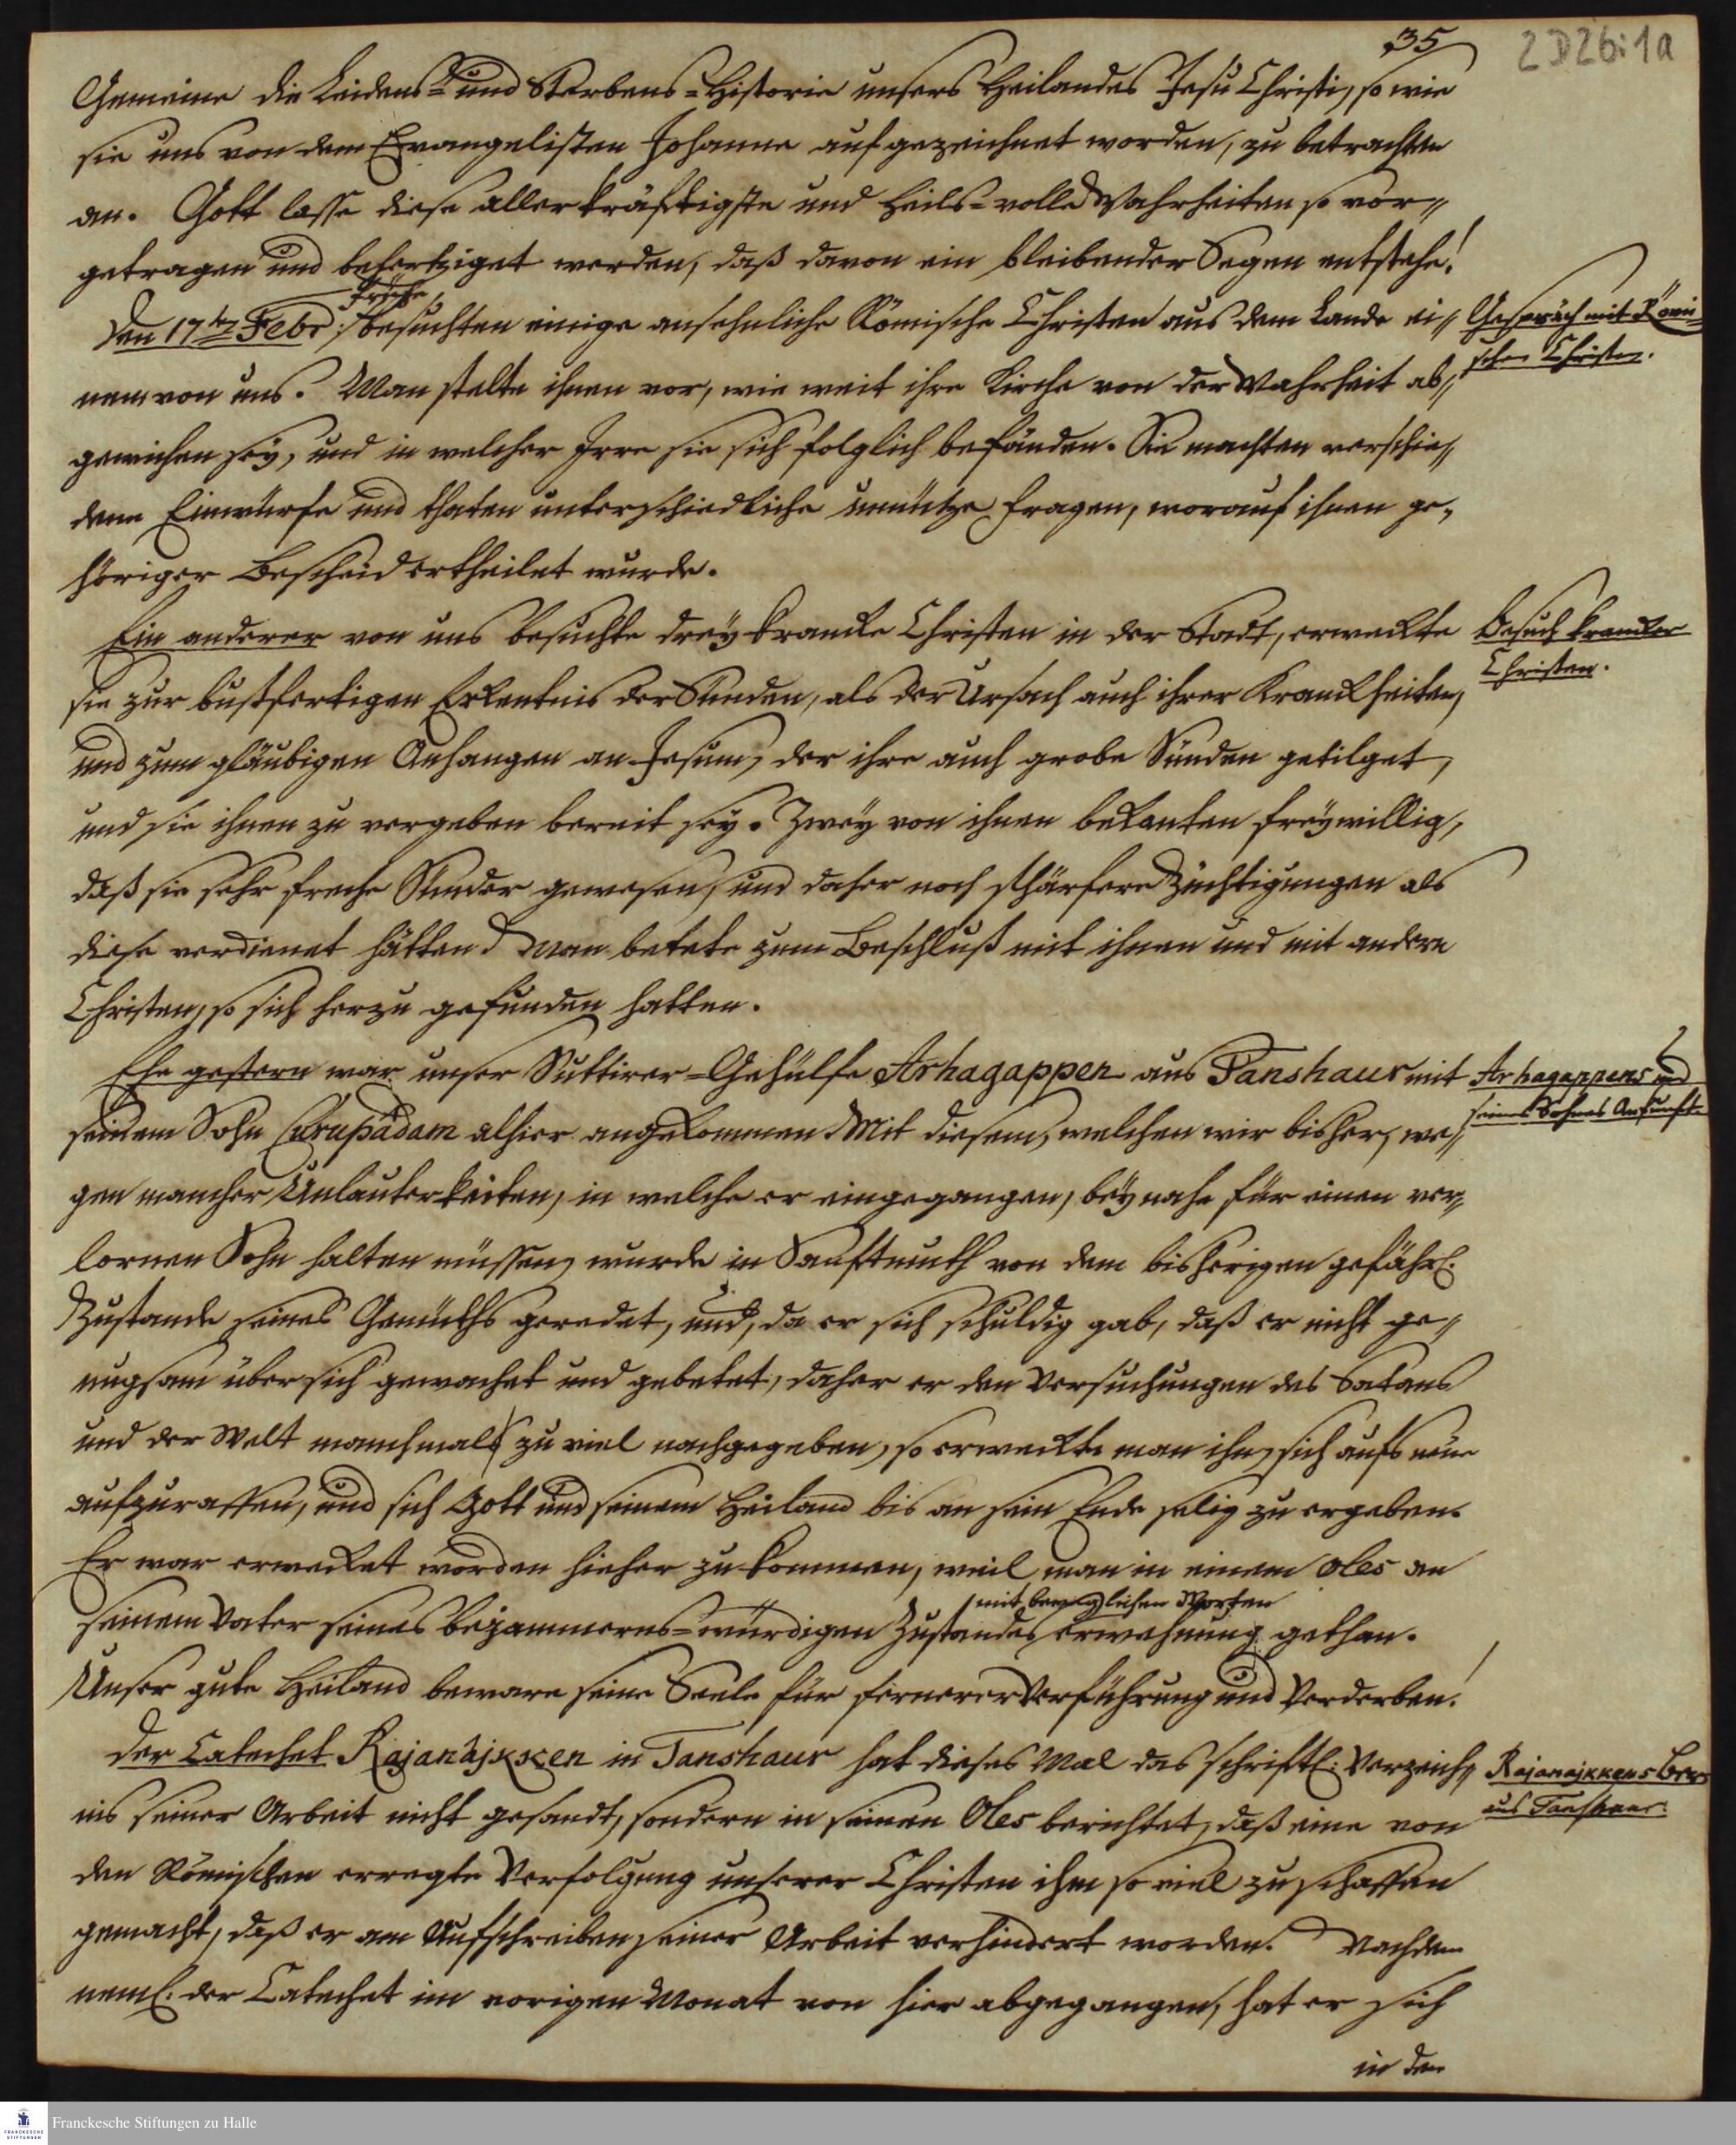 35
2 D 26:1a
Gemeine die Leidens- und Sterbens-Historie unsers Heilandes Jesu Christi, so wie
sie uns von dem Evangelisten Johanne aufgezeichnet worden, zu betrachten
an. Gott lasse diese allerkräftigste und Heils-volle Wahrheiten so vor-
getragen und behertziget werden, daß davon ein bleibender Segen entstehe!
Den 17ten Febr: besuchten einige ansehnliche Römische Christen aus dem Lande ei-
Gespräch mit Römi-
schen Christen.
nem von uns. Man stelte ihnen vor, wie weit ihre Kirche von der Wahrheit ab-
gewichen sey, und in welcher Irre sie sich folglich befänden. Sie machten verschie-
dene Einwürfe und thaten unterschiedliche unnütze Fragen, worauf ihnen ge-
höriger Bescheid ertheilet wurde.
Ein anderer von uns besuchte drey krancke Christen in der Stadt, erweckte
Besuch krancker
Christen.
sie zur bußfertigen Erkentnis der Sünden, als der Ursach auch ihrer Kranckheiten,
und zum gläubigen Anhangen an Jesum, der ihre auch grobe Sünden getilget,
und sie ihnen zu vergeben bereit sey. Zwey von ihnen bekanten freywillig,
daß sie sehr freche Sünder gewesen, und daher noch schärfere Züchtigungen als
diese verdienet hätten. Man betete zum Beschluß mit ihnen und mit andern
Christen, so sich herzu gefunden hatten.
Ehe gestern war unser Suttirer-Gehülfe Arhagappen aus Tanshaur mit
Arhagappens und
seines Sohnes Ankunft.
seinem Sohn Curupádam alhier angekommen. Mit diesem, welchen wir bisher, we-
gen mancher Unlauterkeiten, in welche er eingegangen, beynahe für einen ver-
lornen Sohn halten müssen, wurde in Sanftmuth von dem bisherigen gefährl.
Zustande seines Gemüths geredet, und, da er sich schuldig gab, daß er nicht ge-
nugsam über sich gewachet und gebetet, daher er den Versuchungen des Satans
und der Welt manchmal zu viel nachgegeben, so erweckte man ihn, sich aufs neue
aufzuraffen, und sich Gott und seinem Heiland bis an sein Ende selig zu ergeben.
Er war erwecket worden hieher zu kommen, weil man in einem Oles an
mit beweglichen Worten
seinem Vater seines bejammerns-würdigen Zustandes erwehnung gethan.
Unser gute Heiland beware seine Seele für fernerer Verführung und Verderben!
Der Catechet Rajanájkken in Tanshaur hat dieses Mal das schriftl: Verzeich-
Rajanajkkens Ber.
aus Tanshaur.
nis seiner Arbeit nicht gesandt, sondern in seinen Oles berichtet, daß eine von
den Römischen erregte Verfolgung unserer Christen ihm so viel zu schaffen
gemacht, daß er am Aufschreiben seiner Arbeit verhindert worden. Nachdem
neml. der Catechet im vorigen Monat von hier abgegangen, hat er sich
in den
Franckesche Stiftungen zu Halle